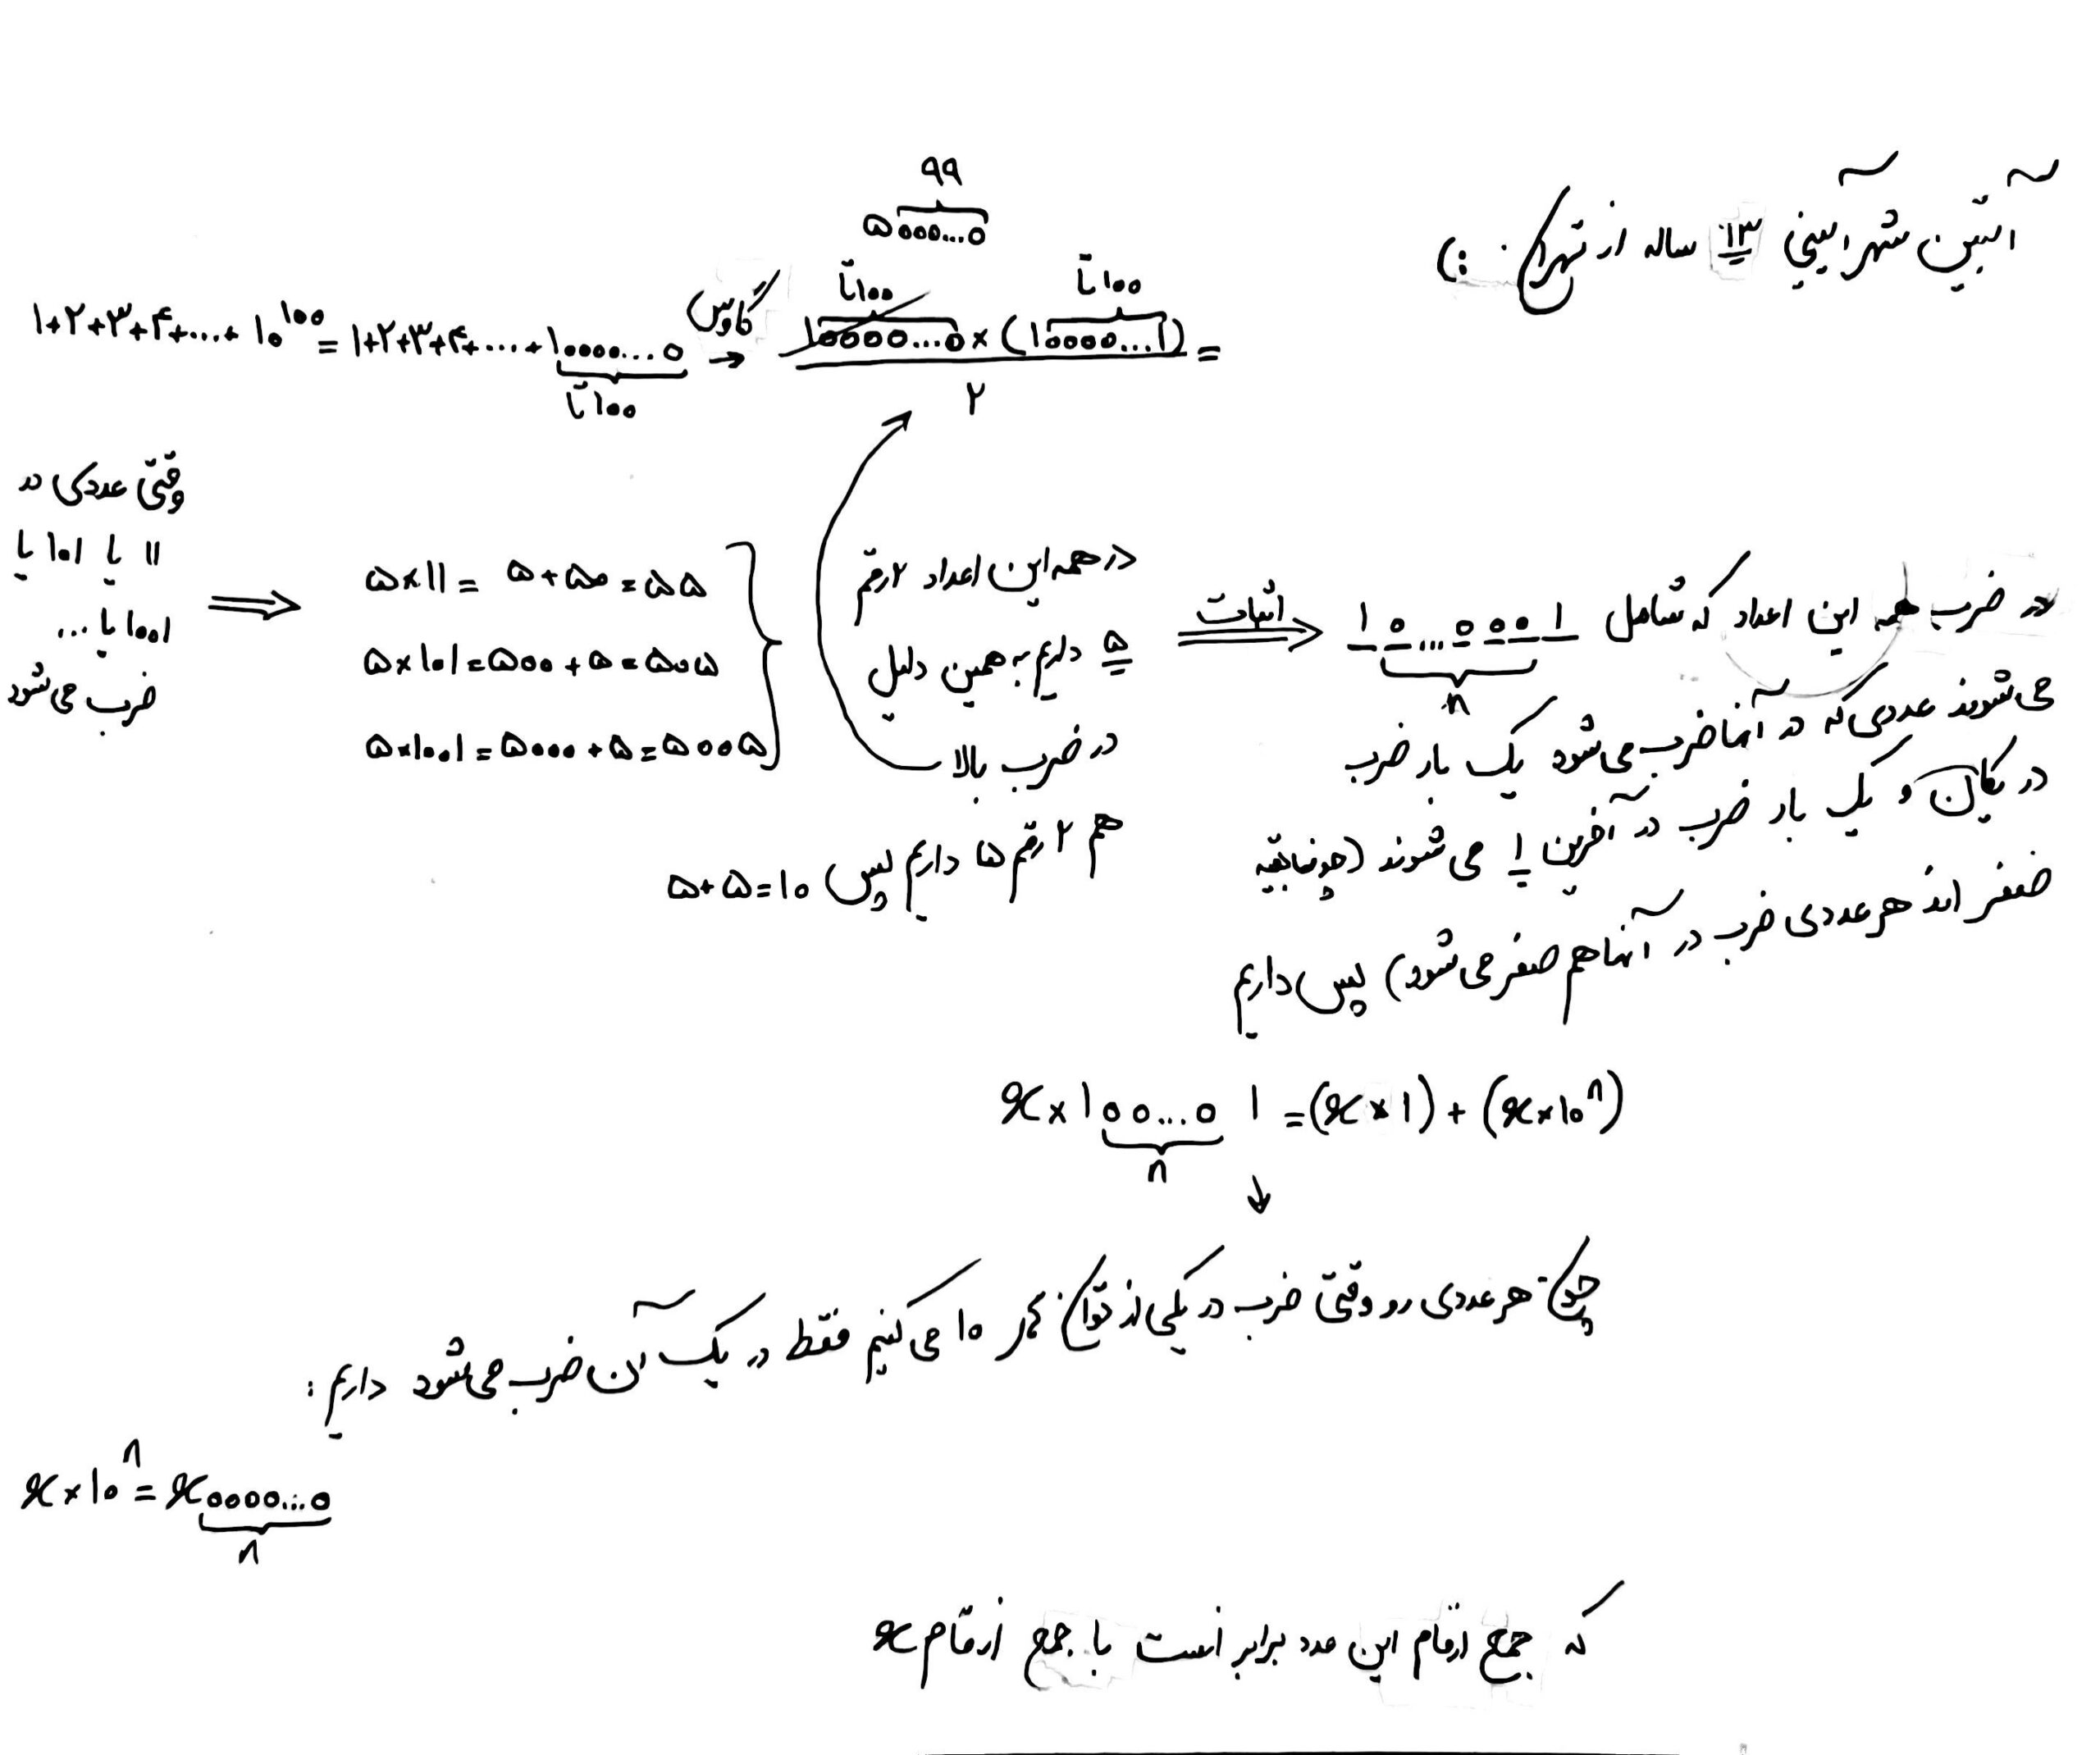 آبتین شهرآیینی ۱۳ ساله از تهران :)
۹۹
۵۰۰۰...۰
۱+۲+۳+۴+...+ ۱۰^۱۰۰ = ۱+۲+۳+۴+...+۱۰۰۰۰...۰ گاوس → ۱۰۰۰۰...۰ × (۱۰۰۰۰...۱) =
۱۰۰تا ۱۰۰تا
۱۰۰تا
۲
وقتی عددی در
۱۱ یا ۱۰۱ یا
۱۰۰۱ یا ...
ضرب می‌شود
⇒
۵×۱۱ = ۵+۵۰ = ۵۵
۵×۱۰۱ = ۵۰۰+۵ = ۵۰۵
۵×۱۰۰۱ = ۵۰۰۰+۵ = ۵۰۰۵
در همه این اعداد ۲ رقم
۵ داریم به همین دلیل
در ضرب بالا
هم ۲ رقم ۵ داریم پس ۵+۵=۱۰
اثبات ⇒
در ضرب همه این اعداد که شامل ۱۰...۰۰۰۱
n
می‌شوند عددی که در آنها ضرب می‌شود یک بار ضرب
در یکان و یک بار ضرب در آخرین ۱ می‌شوند (چون بقیه
صفر اند هر عددی ضرب در آنها هم صفر می‌شود) پس داریم
x×۱۰۰...۰۱ = (x×۱) + (x×۱۰^n)
n
↓
چون هر عددی رو وقتی ضرب در یکی از توان های ۱۰ می‌کنیم فقط در یک آن ضرب می‌شود داریم:
x×۱۰^n = x۰۰۰۰...۰
n
که جمع ارقام این عدد برابر است با جمع ارقام x